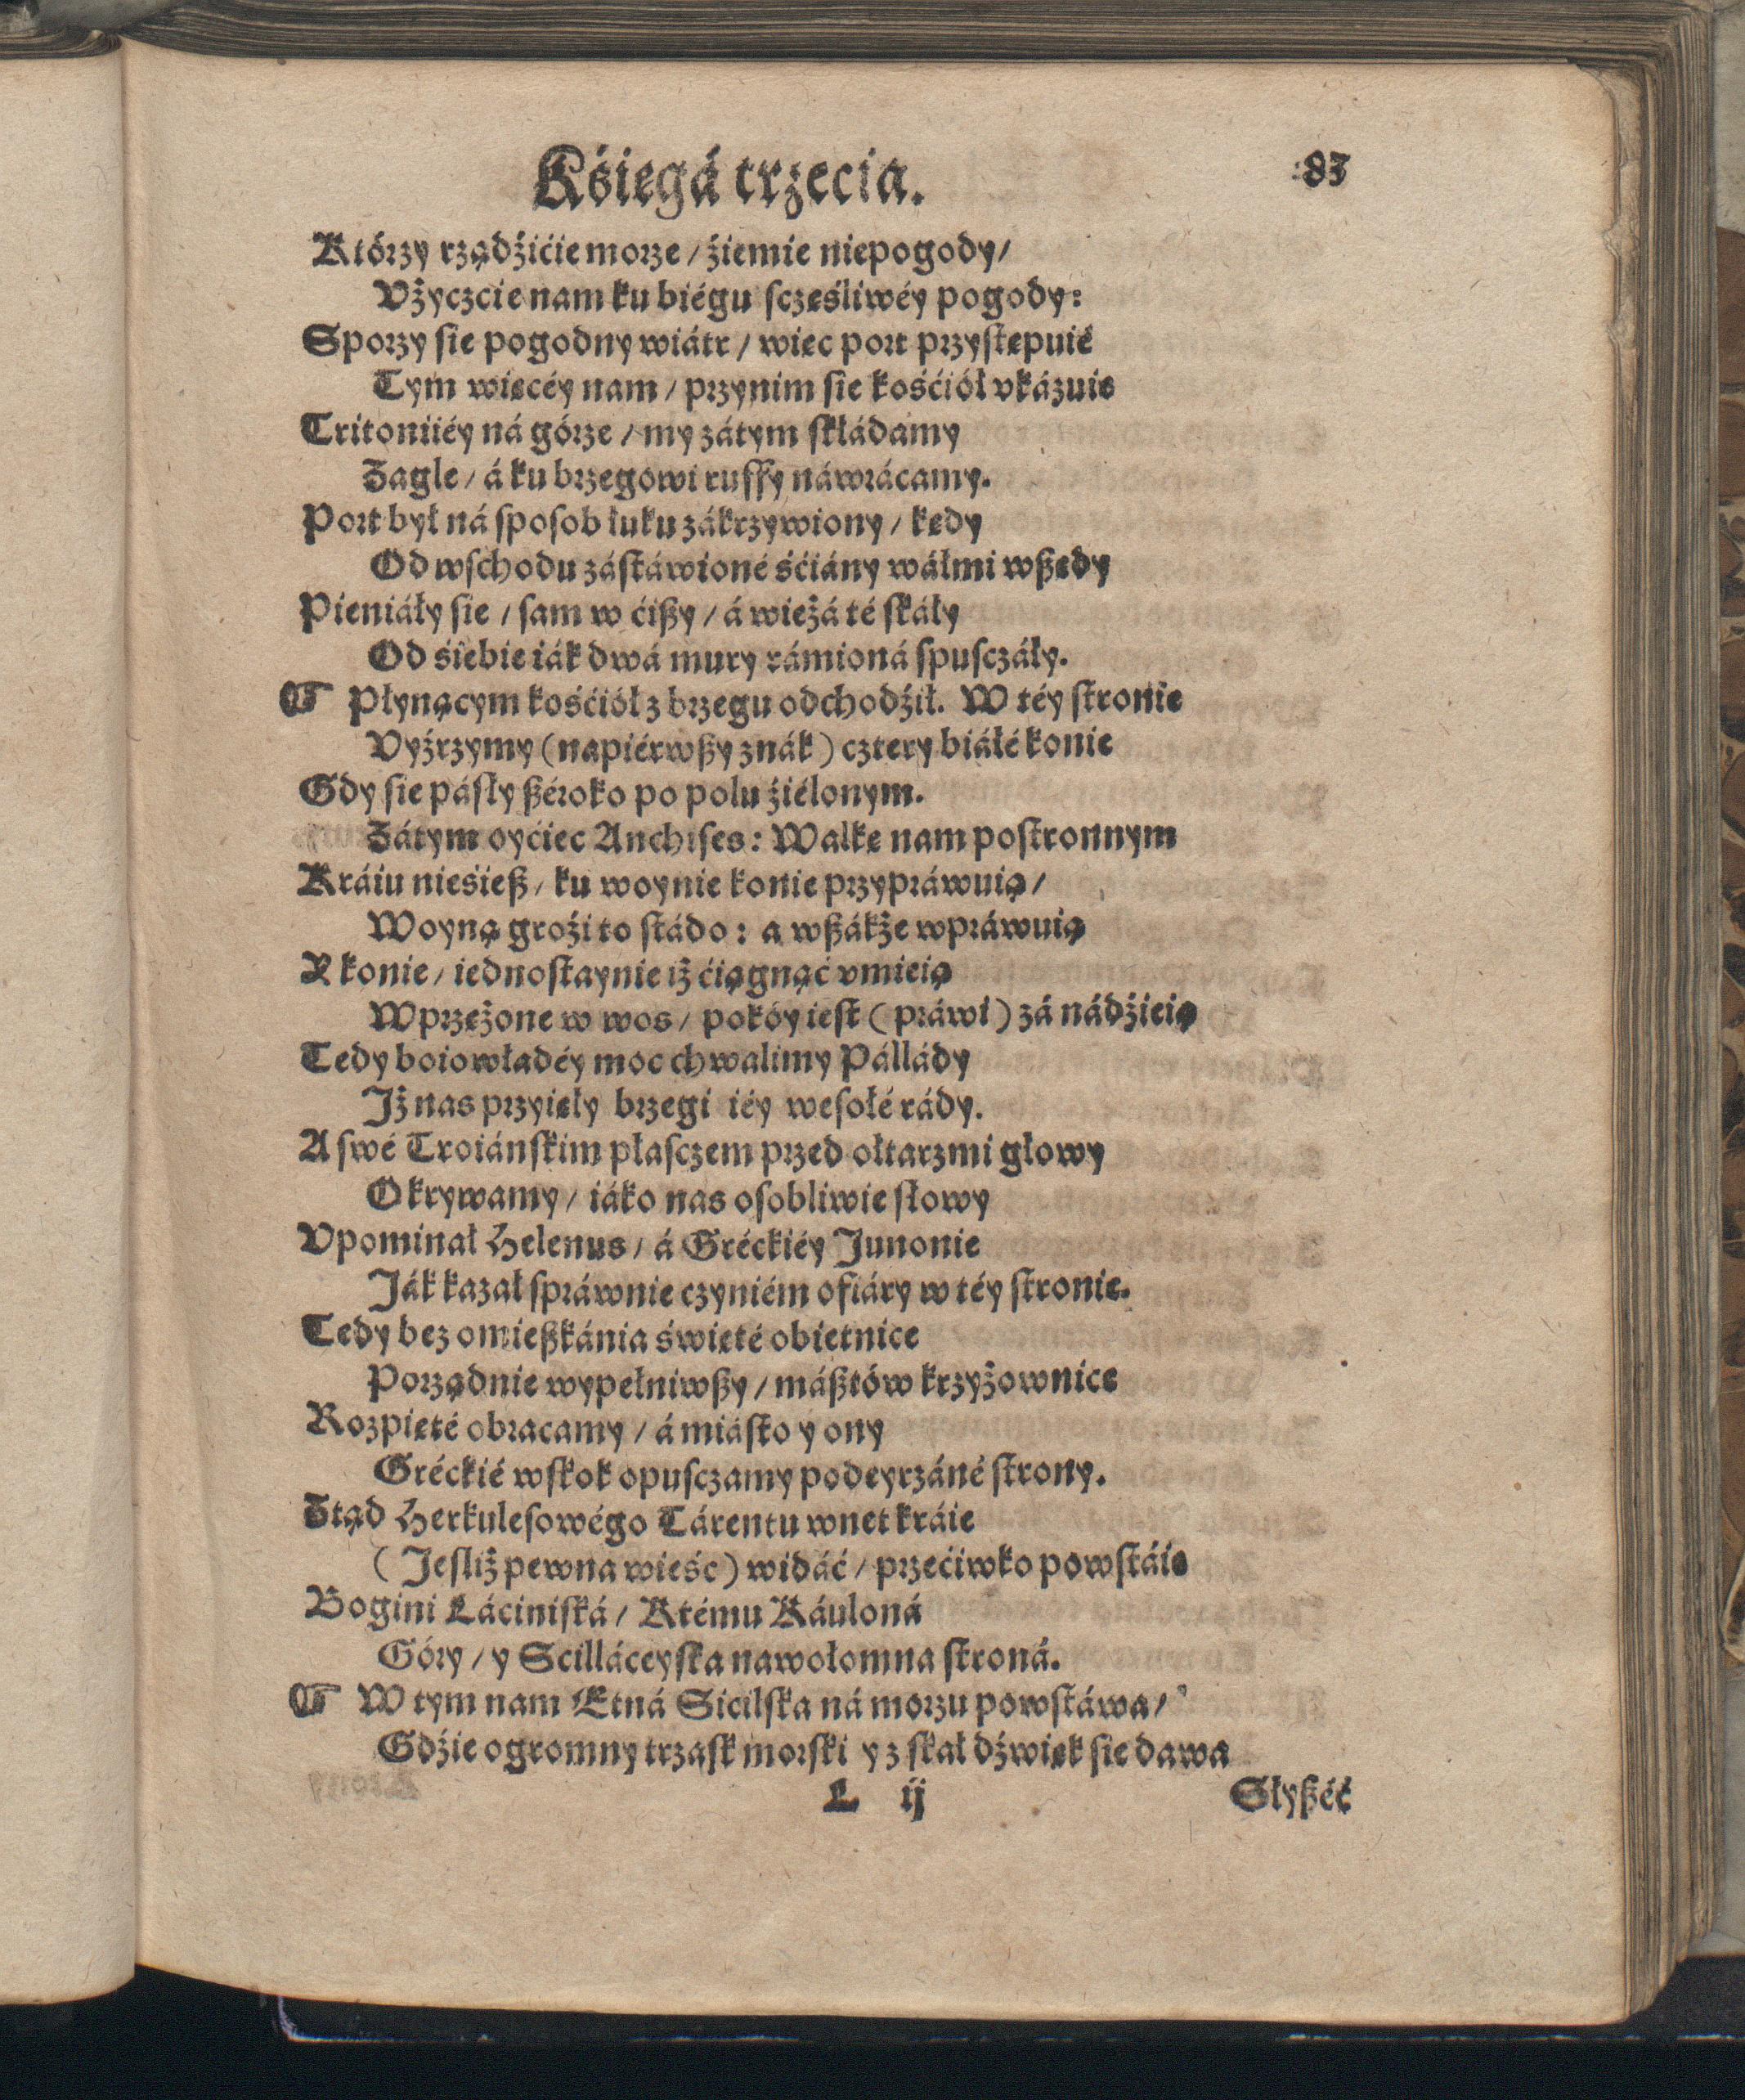 Kśięgá trzecia. 83
Którzy rządźićie morze / źiemie niepogody /
Vżyczcie nam ku biégu sczęśliwéy pogody:
Sporzy sie pogodny wiátr / więc port przystępuié
Tym więcéy nam / przynim sie kośćiół vkázuie
Tritoniiéy ná górze / my zátym skłádamy
Żagle / á ku brzegowi ruffy náwrácamy.
Port był ná sposob łuku zákrzywiony / kędy
Od wschodu zástáwioné śćiány wáłmi wßędy
Pieniáły sie / sam w ćißy / á wieżá té skáły
Od śiebie iák dwá mury rámioná spusczáły.
☞ Płynącym kośćiół z brzegu odchodźił. W téy stronie
Vyźrzymy (napiérwßy znák) cztery biáłé konie
Gdy sie pásły ßéroko po polu źiélonym.
Zátym oyćiec Anchises: Walkę nam postronnym
Kráiu nieśieß / ku woynie konie przypráwuią /
Woyną groźi to stádo: a wßákże wpráwuią
X konie / iednostaynie iż ćiągnąć vmieią
Wprzężone w wos / pokóy iest (práwi) zá nádźieią
Tedy boiowładéy moc chwalimy Pállády
Jż nas przyięły brzegi iéy wesołé rády.
A swé Troiánskim płasczem przed ołtarzmi głowy
Okrywamy / iáko nas osobliwie słowy
Vpominał Helenus / á Gréckiéy Junonie
Ják kazał spráwnie czyniém ofiáry w téy stronie.
Tedy bez omießkánia święté obietnice
Porządnie wypełniwßy / máßtów krzyżownice
Rozpięté obracamy / á miásto y ony
Gréckié wskok opusczamy podeyrzáné strony.
Ztąd Herkulesowégo Tárentu wnet kráie
(Jesliż pewna wieśc) widáć / przećiwko powstáie
Bogini Láciniská / Ktému Káuloná
Góry / y Scilláceyska nawołomna stroná.
☞ W tym nam Etná Sicilska ná morzu powstáwa /
Gdźie ogromny trzask morski y z skał dźwięk sie dawa
L ij Słyßéć